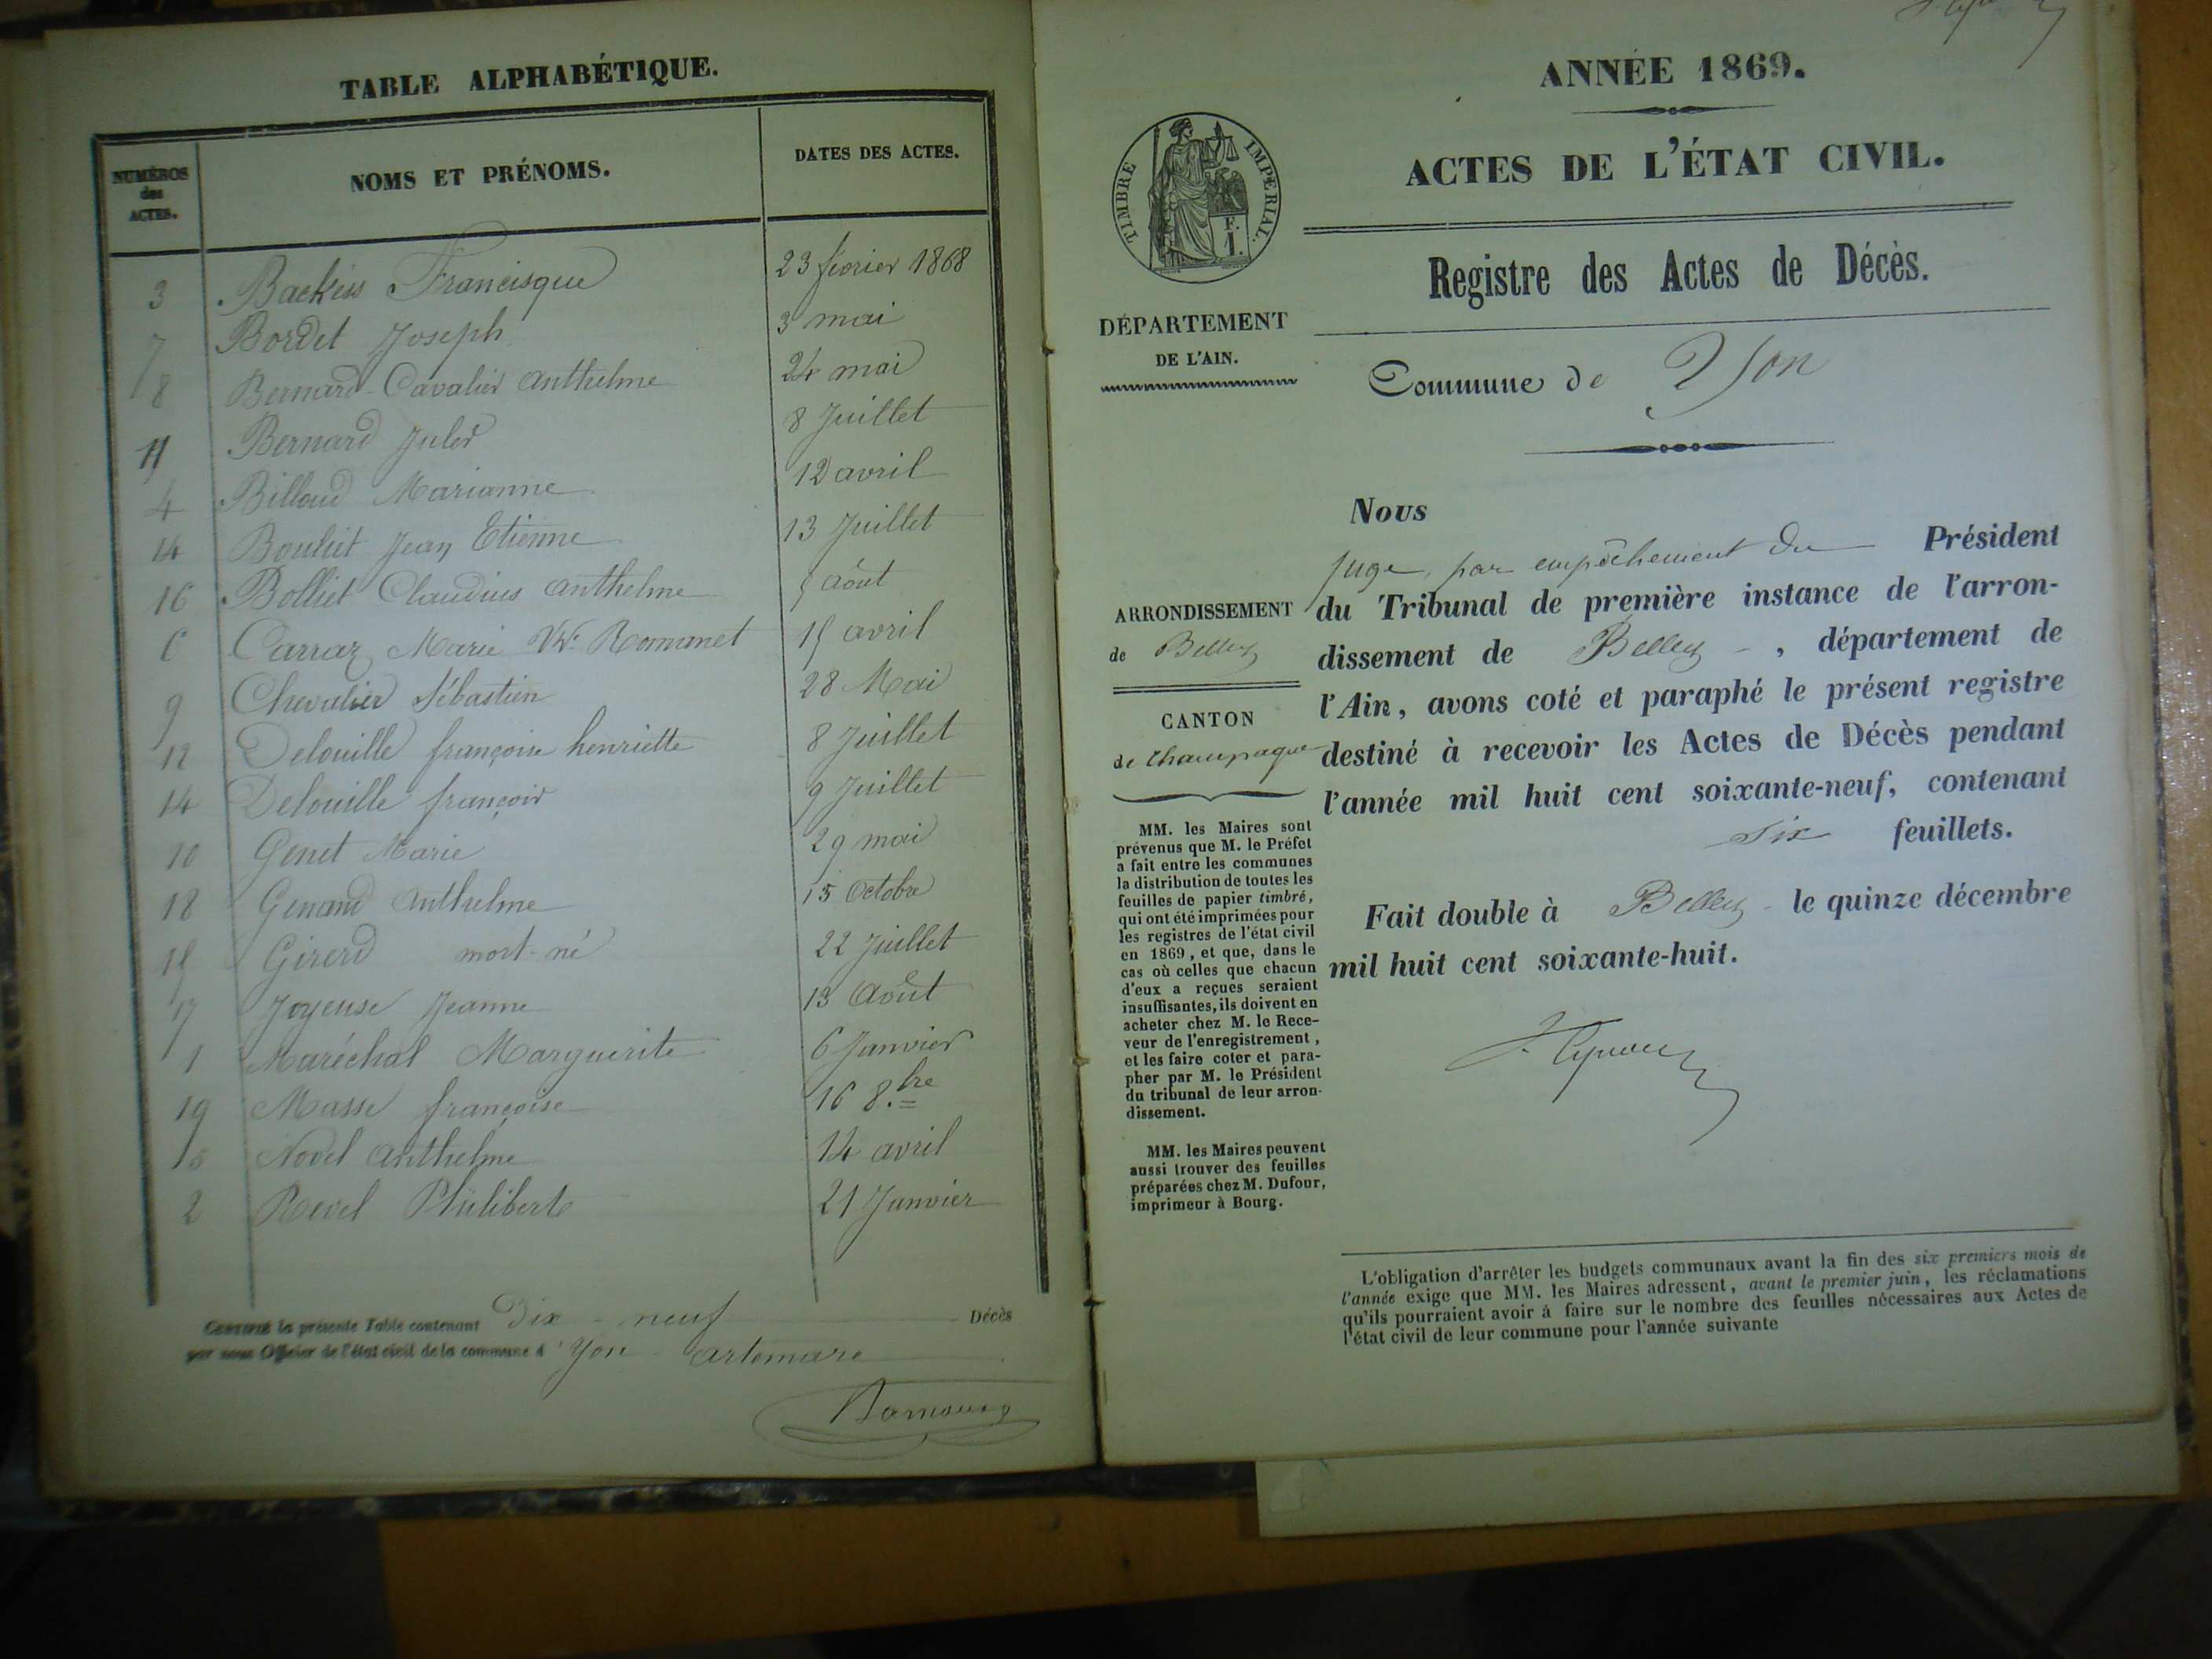 TABLE ALPHABÉTIQUE.
NUMÉROS
des
ACTES.
NOMS ET PRÉNOMS.
DATES DES ACTES.
3 Backès Francisque 23 février 1868
7 Bordet Joseph 3 mai
8 Bernard-Cavalier Anthelme 24 mai
11 Bernard Jules 8 Juillet
4 Billoud Marianne 12 avril
14 Bouliet Jean Etienne 13 Juillet
16 Bolliet Claudius Anthelme 5 Aôut
6 Carraz Marie Vve Romanet 15 avril
9 Chevalier Sébastien 28 Mai
12 Delouille françoise henriette 8 Juillet
14 Delouille françois 9 Juillet
10 Genet Marie 29 mai
18 Genand Anthelme 15 Octobre
15 Girerd mort-né 22 Juillet
17 Joyeuse Jeanne 13 Août
1 Maréchal Marguerite 6 Janvier
19 Masse françoise 16 8.bre
5 Novel Anthelme 14 avril
2 Revel Philiberte 21 Janvier
Certifié la présente Table contenant Dix-neuf Décès
par nous Officier de l'état civil de la commune d'Yon artemare
ANNÉE 1869.
TIMBRE IMPÉRIAL.
F.
1.
ACTES DE L'ÉTAT CIVIL.
Registre des Actes de Décès.
DÉPARTEMENT
DE L'AIN.
Commune de Yon
Nous
juge, par empêchement du Président
du Tribunal de première instance de l'arron-
dissement de Belley, département de
l'Ain, avons coté et paraphé le présent registre
destiné à recevoir les Actes de Décès pendant
l'année mil huit cent soixante-neuf, contenant
six feuillets.
Fait double à Belley le quinze décembre
mil huit cent soixante-huit.
ARRONDISSEMENT
de Belley
CANTON
de Champagne
MM. les Maires sont
prévenus que M. le Préfet
a fait entre les communes
la distribution de toutes les
feuilles de papier timbré,
qui ont été imprimées pour
les registres de l'état civil
en 1869, et que, dans le
cas où celles que chacun
d'eux a reçues seraient
insuffisantes, ils doivent en
acheter chez M. le Rece-
veur de l'enregistrement,
et les faire coter et para-
pher par M. le Président
du tribunal de leur arron-
dissement.
MM. les Maires peuvent
aussi trouver des feuilles
préparées chez M. Dufour,
imprimeur à Bourg.
L'obligation d'arrêter les budgets communaux avant la fin des six premiers mois de
l'année exige que MM. les Maires adressent, avant le premier juin, les réclamations
qu'ils pourraient avoir à faire sur le nombre des feuilles nécessaires aux Actes de
l'état civil de leur commune pour l'année suivante